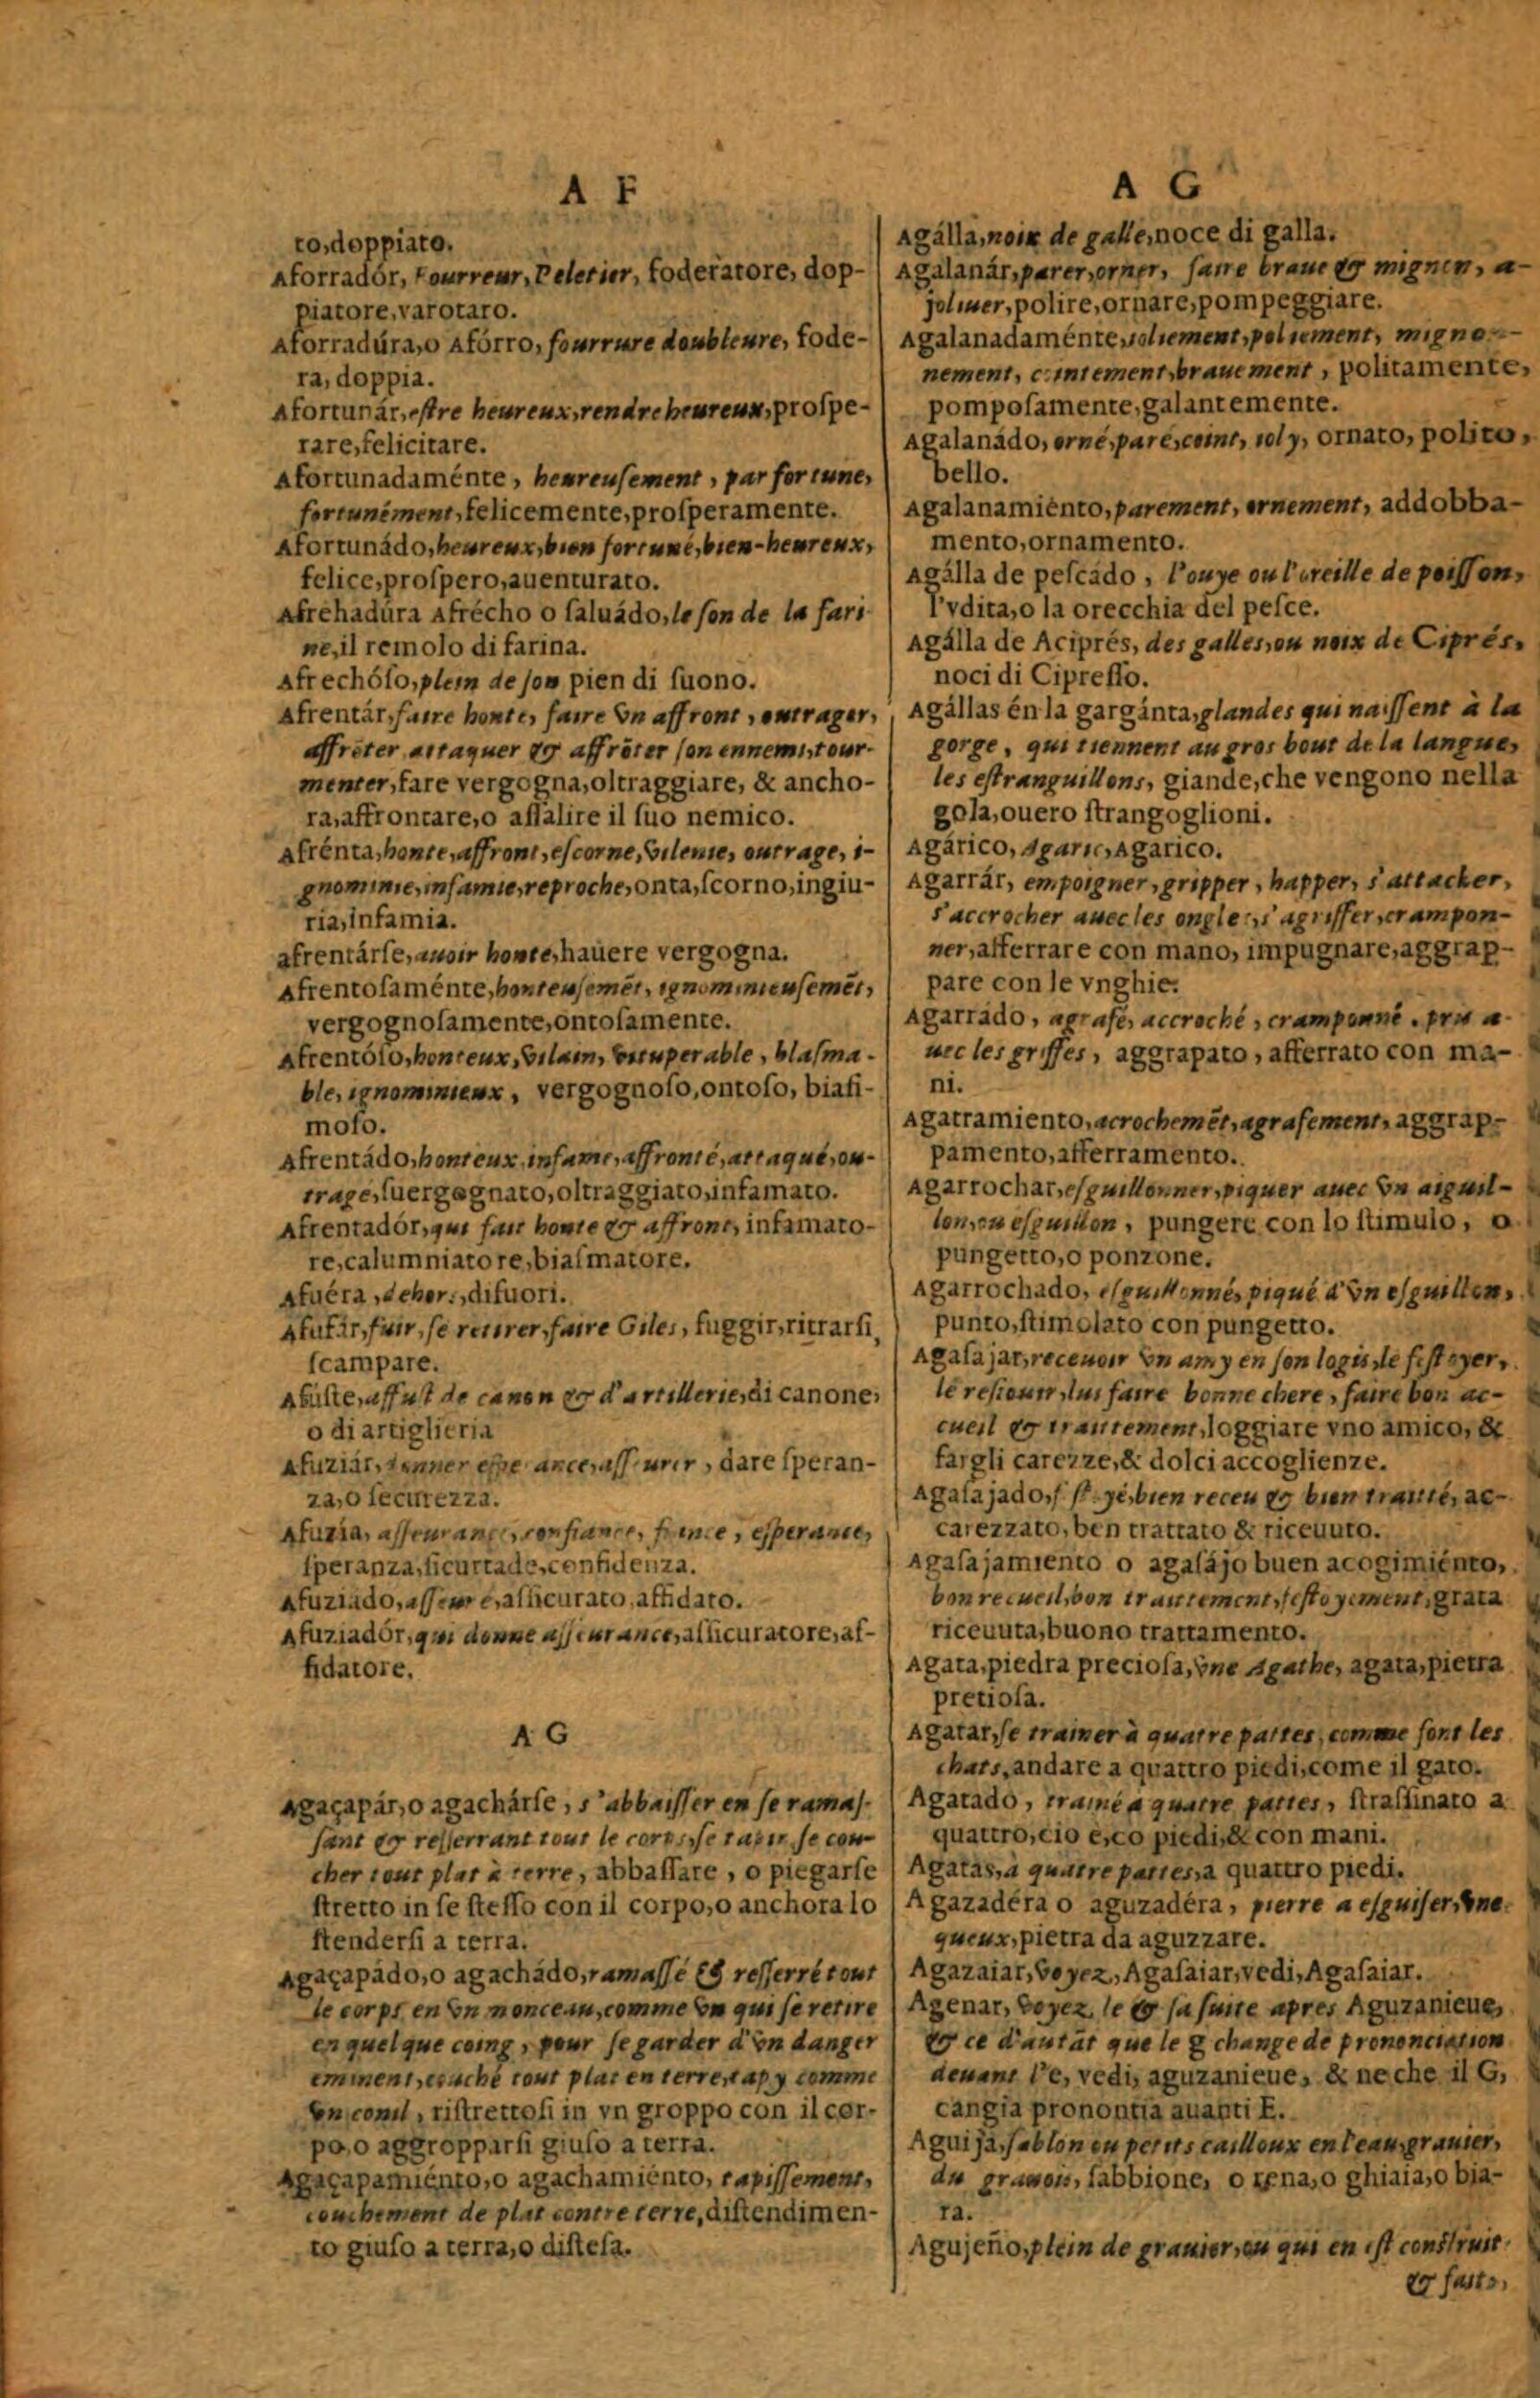 A F
to,doppiato.
Aforradór, Fourreur, Peletier, foderatore, dop-
piatore,varotaro.
Aforradúra,o Afórro, fourrure doubleure, fode-
ra, doppia.
Afortunár,eſtre heureux,rendre heureux,proſpe-
rare,felicitare.
Afortunadaménte, heureuſement, par fortune,
fortunément,felicemente,proſperamente.
Afortunádo,heureux,bien fortuné,bien-heureux,
felice,proſpero,auenturato.
Afrehadúra Afrécho o ſaluádo,le ſon de la fari
ne,il remolo di farina.
Afrechóſo,plein de ſon pien di ſuono.
Afrentár,faire honte, faire vn affront, outrager,
affrõter attaquer & affrõter ſon ennemi,tour-
menter,fare vergogna,oltraggiare, & ancho-
ra,affrontare,o aſſalire il ſuo nemico.
Afrénta,honte,affront,eſcorne,vilenie, outrage, i-
gnominie,infamie,reproche,onta,ſcorno,ingiu-
ria,infamia.
afrentárſe,auoir honte,hauere vergogna.
Afrentoſaménte,honteuſemẽt, ignominieuſemẽt,
vergognoſamente,ontoſamente.
Afrentóſo,honteux,vilain, vituperable, blaſma-
ble, ignominieux, vergognoſo,ontoſo, biaſi-
moſo.
Afrentádo,honteux,infame,affronté,attaqué,ou-
tragé,ſuergognato,oltraggiato,infamato.
Afrentadór,qui fait honte & affront, infamato-
re,calumniatore,biaſmatore.
Afuéra,dehors,difuori.
Afufár,fuir,ſe retirer,faire Giles, fuggir,ritrarſi,
ſcampare.
Afúſte,affuſt de canon & d'artillerie,di canone,
o di artiglieria
Afuziár, donner eſperance,aſſeurer, dare ſperan-
za,o ſecurezza.
Afuzía, aſſeurance, confiance, fiance, eſperance,
ſperanza,ſicurtade,confidenza.
Afuziado,aſſeuré,aſſicurato,affidato.
Afuziadór,qui donne aſſeurance,aſſicuratore,af-
fidatore.
A G
Agaçapár,o agachárſe, s'abbaiſſer en ſe ramaſ-
ſant & reſſerrant tout le corps,ſe tapir ſe cou-
cher tout plat à terre, abbaſſare, o piegarſe
ſtretto in ſe ſteſſo con il corpo,o anchora lo
ſtenderſi a terra.
Agaçapádo,o agachádo,ramaſſé & reſſerré tout
le corps en vn monceau,comme vn qui ſe retire
en quelque coing, pour ſe garder d'vn danger
eminent,couché tout plat en terre,tapy comme
vn conil, riſtrettoſi in vn groppo con il cor-
po,o aggropparſi giuſo a terra.
Agaçapamiénto,o agachamiénto, tapiſſement,
couchement de plat contre terre,diſtendimen-
to giuſo a terra,o diſteſa.
A G
Agálla,noix de galle,noce di galla.
Agalanár,parer,orner, faire braue & mignon, a-
joliuer,polire,ornare,pompeggiare.
Agalanadaménte,joliement,poliement, migno-
nement, cointement,brauement, politamente,
pompoſamente,galantemente.
Agalanádo, orné,paré,coint, ioly, ornato, polito,
bello.
Agalanamiénto,parement, ornement, addobba-
mento,ornamento.
Agálla de peſcádo, l'ouye ou l'oreille de poiſſon,
l'vdita,o la orecchia del peſce.
Agálla de Aciprés, des galles,ou noix de Ciprés,
noci di Cipreſſo.
Agállas én la gargánta,glandes qui naiſſent à la
gorge, qui tiennent au gros bout de la langue,
les eſtranguillons, giande,che vengono nella
gola,ouero ſtrangoglioni.
Agárico, Agaric,Agarico.
Agarrár, empoigner,gripper, happer, s'attacher,
s'accrocher auec les ongles,s'agriffer,crampon-
ner,afferrare con mano, impugnare,aggrap-
pare con le vnghie.
Agarrádo, agrafé, accroché, cramponné, pris a
uec les griffes, aggrapato, afferrato con ma-
ni.
Agarramiento,acrochemẽt,agrafement, aggrap-
pamento,afferramento.
Agarrochar,eſguillonner,piquer auec vn aiguil-
lon,ou eſguillon, pungere con lo ſtimulo, o
pungetto,o ponzone.
Agarrochado, eſguillonné,piqué d'vn eſguillon,
punto,ſtimolato con pungetto.
Agaſajar,receuoir vn amy en ſon logis,le feſtoyer,
le reſiouir,lui faire bonne chere, faire bon ac-
cueil & traittement,loggiare vno amico, &
fargli carezze,& dolci accoglienze.
Agaſajado,feſtoyé,bien receu & bien traitté, ac-
carezzato,ben trattato & riceuuto.
Agaſajamiento o agaſájo buen acogimiénto,
bon recueil,bon traittement,feſtoyement,grata
riceuuta,buono trattamento.
Agata,piedra precioſa,vne Agathe, agata,pietra
pretioſa.
Agatar,ſe trainer à quatre pattes, comme font les
chats,andare a quattro piedi,come il gato.
Agatado, trainé a quatre pattes, ſtraſſinato a
quattro,cio e,co piedi,& con mani.
Agatas,à quatre pattes,a quattro piedi.
Agazadéra o aguzadéra, pierre a eſguiſer,vne
queux,pietra da aguzzare.
Agazaiar,voyez,Agaſaiar,vedi,Agaſaiar.
Agenar, voyez le & ſa ſuite apres Aguzanieue,
& ce d'autãt que le g change de prononciation
deuant l'e, vedi, aguzanieue, & ne che il G,
cangia pronontia auanti E.
Aguija,ſablon ou petits cailloux en l'eau,grauier,
du grauois, ſabbione, o rena,o ghiaia,o bia-
ra.
Agujeño,plein de grauier,ou qui en eſt conſtruit
& fait,